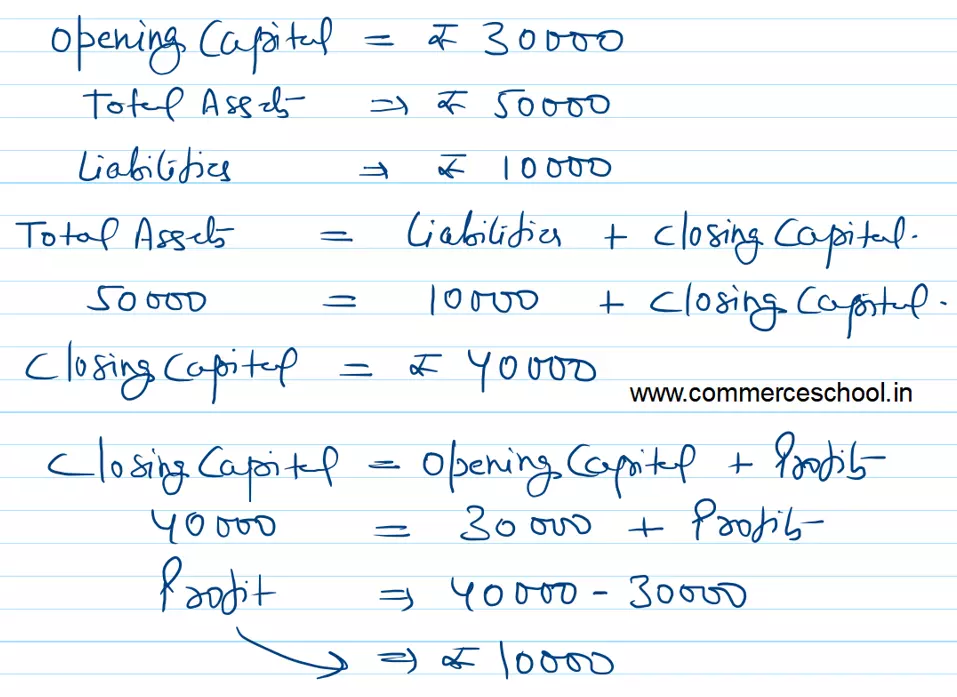 Opening Capital = ₹ 30000
Total Assets ⇒ ₹ 50000
Liabilities ⇒ ₹ 10000
Total Assets = Liabilities + Closing Capital.
50000 = 10000 + Closing Capital.
Closing Capital = ₹ 40000
www.commerceschool.in
Closing Capital = Opening Capital + Profits
40000 = 30000 + Profits
Profit ⇒ 40000 - 30000
⇒ ₹ 10000